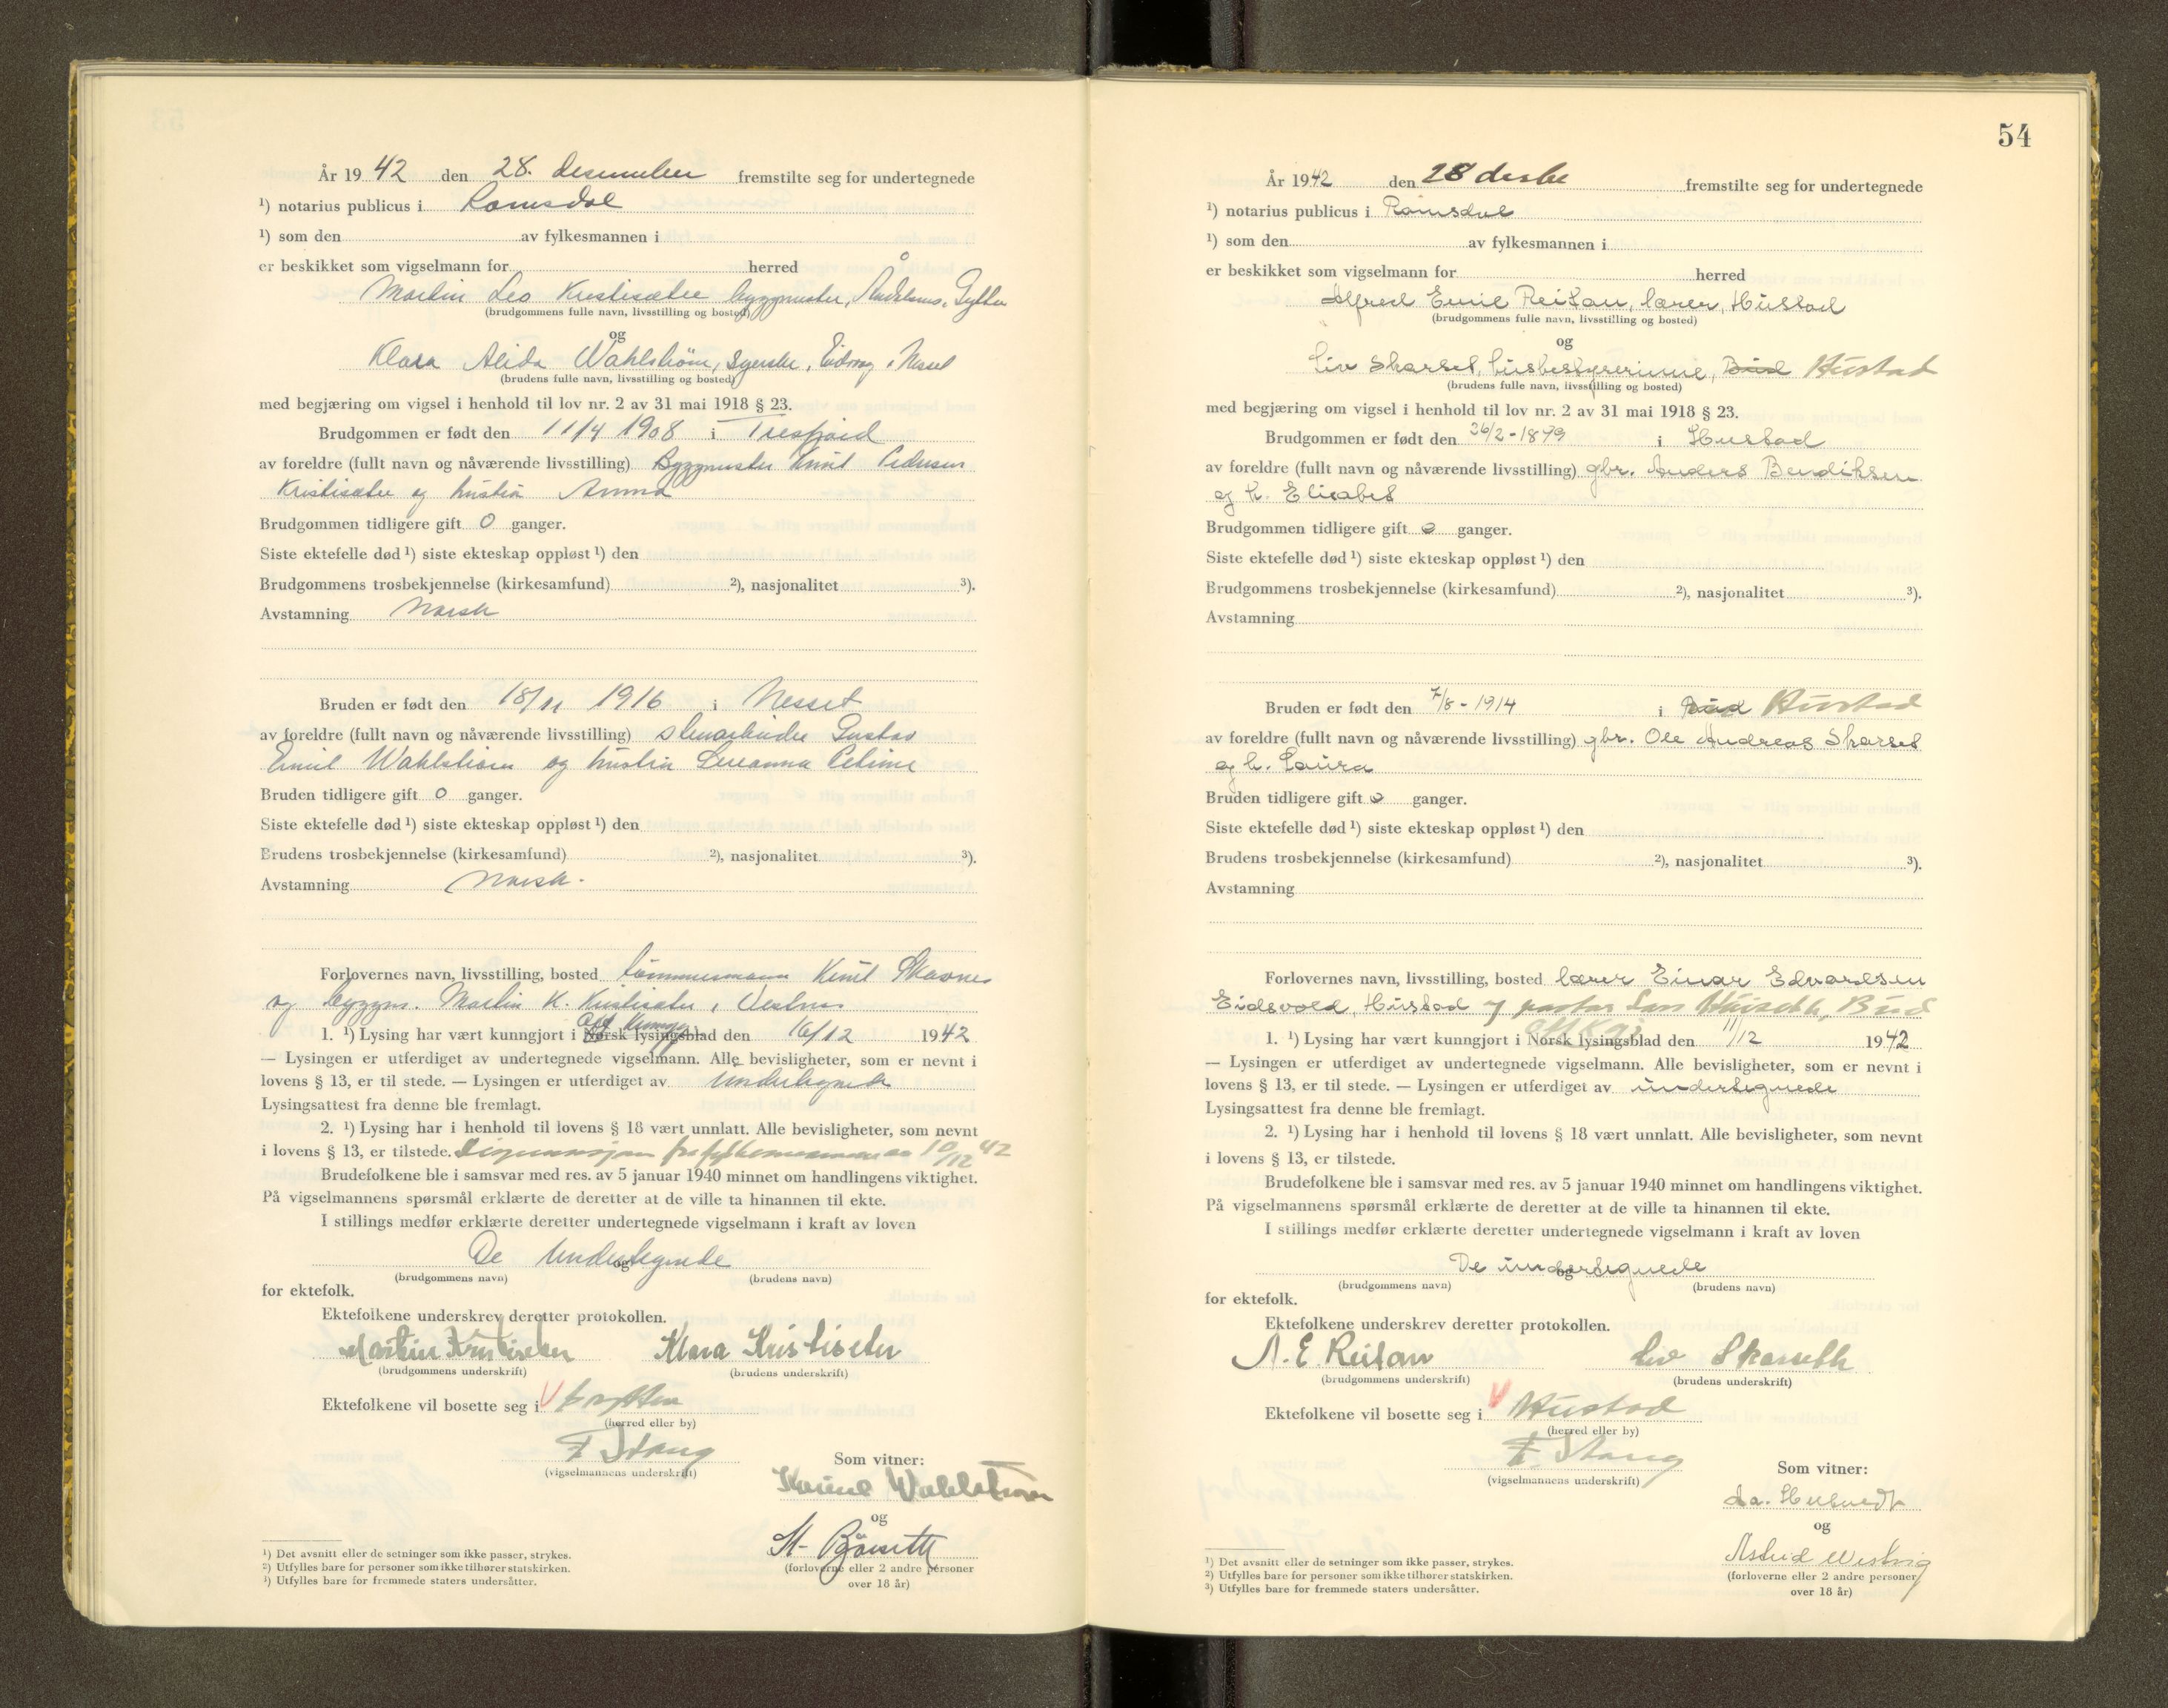 År 1942 den 28. desember fremstilte seg for undertegnede
¹) notarius publicus i Romsdal
¹) som den av fylkesmannen i
er beskikket som vigselmann for herred
Martin Leo Kristisæter byggmester, Åndalsnes, Grytten
(brudgommens fulle navn, livsstilling og bosted)
og
Klara Alida Wahlstrøm, syerske, Eidsvåg i Nesset
(brudens fulle navn, livsstilling og bosted)
med begjæring om vigsel i henhold til lov nr. 2 av 31 mai 1918 § 23.
Brudgommen er født den 11/4 1908 i Tresfjord
av foreldre (fullt navn og nåværende livsstilling) Byggmester Knut Pedersen
Kristisæter og hustru Anna
Brudgommen tidligere gift 0 ganger.
Siste ektefelle død ¹) siste ekteskap oppløst ¹) den
Brudgommens trosbekjennelse (kirkesamfund) ²), nasjonalitet ³).
Avstamning Norsk
Bruden er født den 18/11 1916 i Nesset
av foreldre (fullt navn og nåværende livsstilling) stenarbeider Gustav
Emil Wahlstrøm og hustru Susanna Petrine
Bruden tidligere gift 0 ganger.
Siste ektefelle død ¹) siste ekteskap oppløst ¹) den
Brudens trosbekjennelse (kirkesamfund) ²), nasjonalitet ³).
Avstamning Norsk.
Forlovernes navn, livsstilling, bosted tømmermann Knut
og byggm. Martin K. Kristisæter, Vestnes
1. ¹) Lysing har vært kunngjort i Norsk lysingsblad den 16/12 1942
— Lysingen er utferdiget av undertegnede vigselmann. Alle bevisligheter, som er nevnt i
lovens § 13, er til stede. — Lysingen er utferdiget av undertegnede
Lysingsattest fra denne ble fremlagt.
2. ¹) Lysing har i henhold til lovens § 18 vært unnlatt. Alle bevisligheter, som nevnt
i lovens § 13, er tilstede. Dispensasjon fra fylkesmannen av 10/12 42
Brudefolkene ble i samsvar med res. av 5 januar 1940 minnet om handlingens viktighet.
På vigselmannens spørsmål erklærte de deretter at de ville ta hinannen til ekte.
I stillings medfør erklærte deretter undertegnede vigselmann i kraft av loven
De undertegnede
og
(brudgommens navn) (brudens navn)
for ektefolk.
Ektefolkene underskrev deretter protokollen.
Martin Kristiseter Klara Kristiseter
(brudgommens underskrift) (brudens underskrift)
Ektefolkene vil bosette seg i Grytten
(herred eller by)
F Stang
(vigselmannens underskrift)
Som vitner:
Wahlstrøm
og
(forloverne eller 2 andre personer
over 18 år)
¹) Det avsnitt eller de setninger som ikke passer, strykes.
²) Utfylles bare for personer som ikke tilhører statskirken.
³) Utfylles bare for fremmede staters undersåtter.
54
År 1942 den 28 desbr fremstilte seg for undertegnede
¹) notarius publicus i Romsdal
¹) som den av fylkesmannen i
er beskikket som vigselmann for herred
Alfred Emil Reitan, lærer, Hustad
(brudgommens fulle navn, livsstilling og bosted)
og
Liv Skarset, husbestyrerinne, Bud Hustad
(brudens fulle navn, livsstilling og bosted)
med begjæring om vigsel i henhold til lov nr. 2 av 31 mai 1918 § 23.
Brudgommen er født den 26/2-1879 i Hustad
av foreldre (fullt navn og nåværende livsstilling) gbr. Anders Bendiksen
og h. Elisabet
Brudgommen tidligere gift 0 ganger.
Siste ektefelle død ¹) siste ekteskap oppløst ¹) den
Brudgommens trosbekjennelse (kirkesamfund) ²), nasjonalitet ³).
Avstamning
Bruden er født den 7/8-1914 i Bud Hustad
av foreldre (fullt navn og nåværende livsstilling) gbr. Ole Andreas Skarset
og h. Laura
Bruden tidligere gift 0 ganger.
Siste ektefelle død ¹) siste ekteskap oppløst ¹) den
Brudens trosbekjennelse (kirkesamfund) ²), nasjonalitet ³).
Avstamning
Forlovernes navn, livsstilling, bosted lærer Einar Edvardsen
Eidsvold, Hustad og Bud
1. ¹) Lysing har vært kunngjort i Norsk lysingsblad den 11/12 1942
— Lysingen er utferdiget av undertegnede vigselmann. Alle bevisligheter, som er nevnt i
lovens § 13, er til stede. — Lysingen er utferdiget av undertegnede
Lysingsattest fra denne ble fremlagt.
2. ¹) Lysing har i henhold til lovens § 18 vært unnlatt. Alle bevisligheter, som nevnt
i lovens § 13, er tilstede.
Brudefolkene ble i samsvar med res. av 5 januar 1940 minnet om handlingens viktighet.
På vigselmannens spørsmål erklærte de deretter at de ville ta hinannen til ekte.
I stillings medfør erklærte deretter undertegnede vigselmann i kraft av loven
De undertegnede
og
(brudgommens navn) (brudens navn)
for ektefolk.
Ektefolkene underskrev deretter protokollen.
A. E Reitan Liv Skarseth
(brudgommens underskrift) (brudens underskrift)
Ektefolkene vil bosette seg i Hustad
(herred eller by)
F. Stang
(vigselmannens underskrift)
Som vitner:
og
Astrid
(forloverne eller 2 andre personer
over 18 år)
¹) Det avsnitt eller de setninger som ikke passer, strykes.
²) Utfylles bare for personer som ikke tilhører statskirken.
³) Utfylles bare for fremmede staters undersåtter.